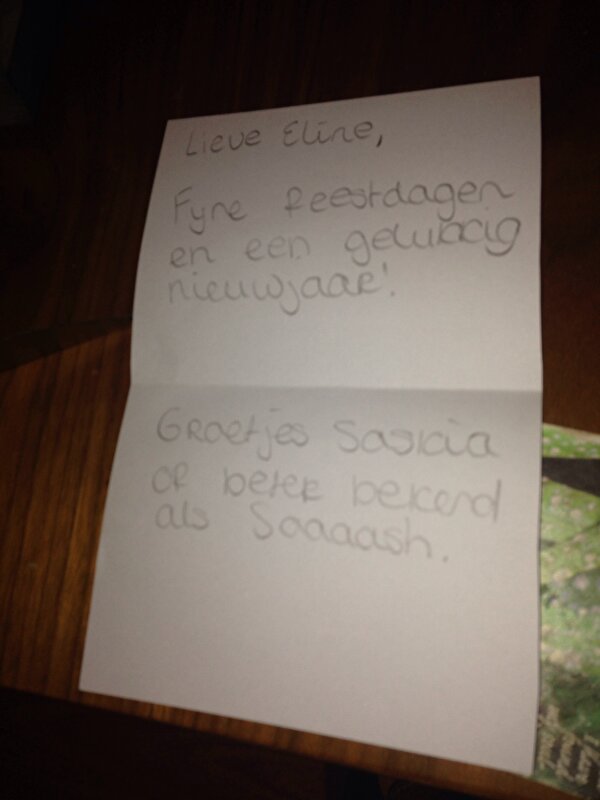 Lieve Eline,
Fyne feestdagen
en een gelukkig
nieuwjaar!
Groetjes Saskia
of beter bekend
als Saaaash.